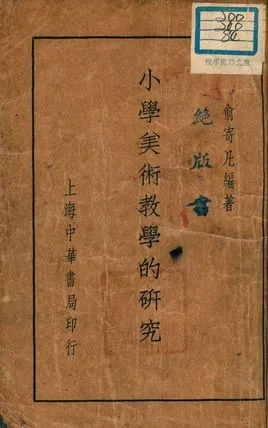 俞寄凡編著
絕版書
小學美術教學的研究
上海中華書局印行